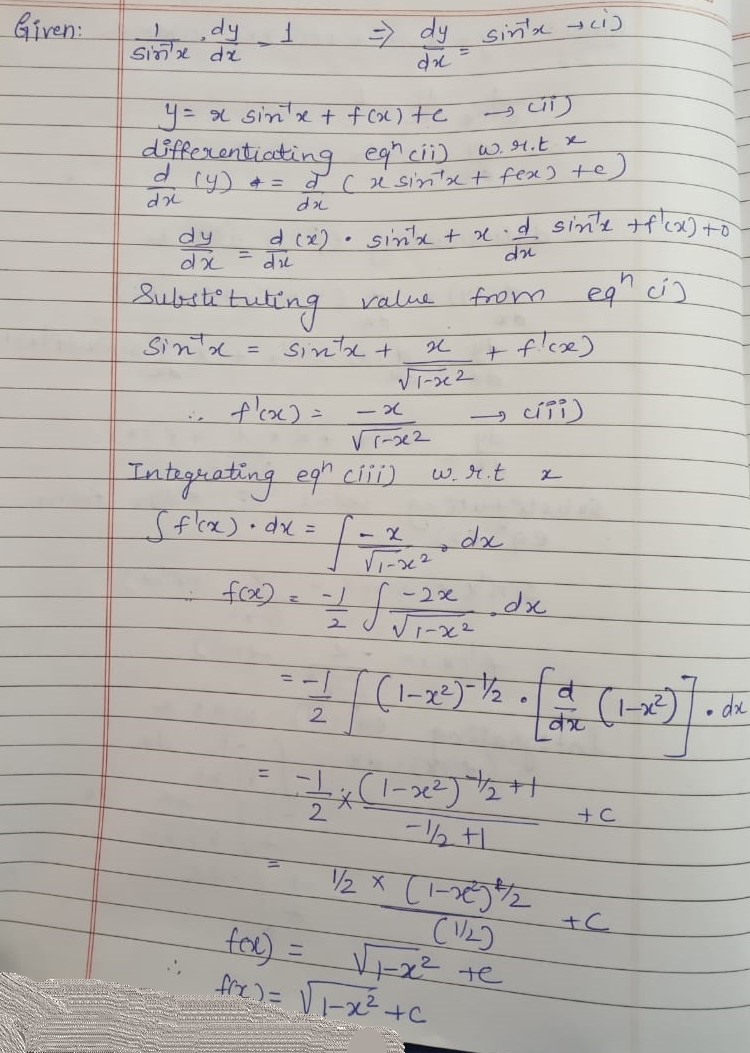 Given: 1/sin⁻¹x . dy/dx = 1 ⇒ dy/dx = sin⁻¹x → (i)
y = x sin⁻¹x + f(x) + c → (ii)
differentiating eqⁿ (ii) w.r.t x
d/dx (y) = d/dx (x sin⁻¹x + f(x) + c)
dy/dx = d/dx (x) · sin⁻¹x + x · d/dx sin⁻¹x + f'(x) + 0
Substituting value from eqⁿ (i)
sin⁻¹x = sin⁻¹x + x/√1-x² + f'(x)
∴ f'(x) = -x/√1-x² → (iii)
Integrating eqⁿ (iii) w.r.t x
∫ f'(x) · dx = ∫ -x/√1-x² . dx
∴ f(x) = -1/2 ∫ -2x/√1-x² . dx
= -1/2 ∫ (1-x²)^-1/2 . [d/dx (1-x²)] . dx
= -1/2 × (1-x²)^-1/2+1 / -1/2+1 + c
= 1/2 × (1-x²)^1/2 / (1/2) + c
f(x) = √1-x² + c
∴ f(x) = √1-x² + c